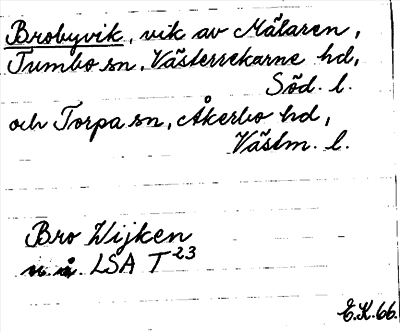 Brobyvik, vik av Mälaren,
Tumbo sn, Västerrekarne hd,
Söd. l.
och Torpa sn, Åkerbo hd,
Västm. l.
Bro Wijken
u. å. LSA T 23
E.K. 66.